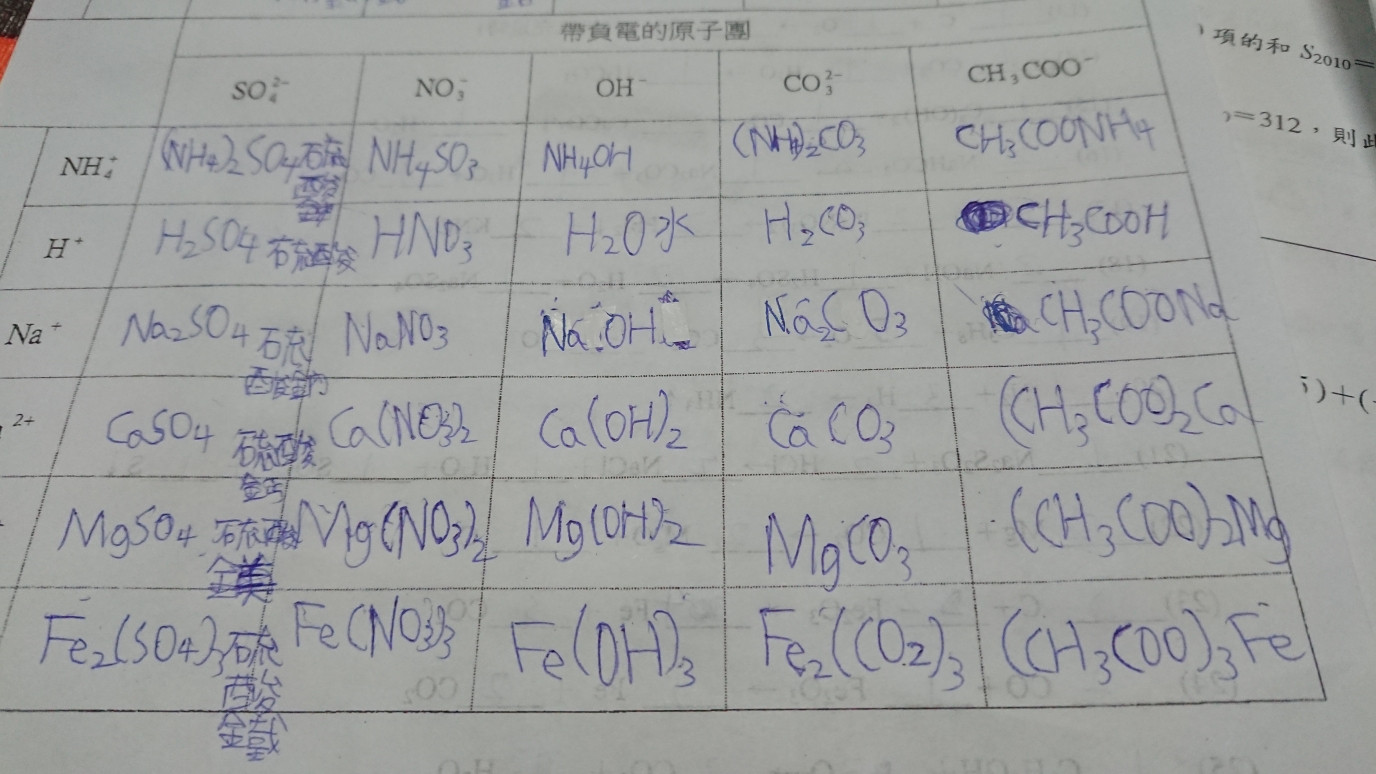 帶負電的原子團
SO₄²⁻ NO₃⁻ OH⁻ CO₃²⁻ CH₃COO⁻
NH₄⁺ (NH₄)₂SO₄ NH₄SO₃ NH₄OH (NH₄)₂CO₃ CH₃COONH₄
H⁺ H₂SO₄ 硫酸 HNO₃ H₂O 水 H₂CO₃ CH₃COOH
Na⁺ Na₂SO₄ 硫酸鈉 NaNO₃ NaOH Na₂CO₃ CH₃COONa
2+ CaSO₄ 硫酸鈣 Ca(NO₃)₂ Ca(OH)₂ CaCO₃ (CH₃COO)₂Ca
MgSO₄ 硫酸鎂 Mg(NO₃)₂ Mg(OH)₂ MgCO₃ (CH₃COO)₂Mg
Fe₂(SO₄)₃ 硫酸鐵 Fe(NO₃)₃ Fe(OH)₃ Fe₂(CO₂)₃ (CH₃COO)₃Fe
項的和 S₂₀₁₀=
)=312,則此
)+(